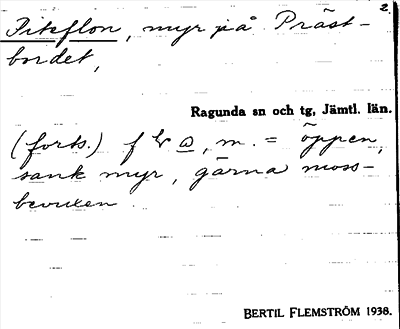 2.
Pitsflon, myr på Präst-
bordet,
Ragunda sn och tg, Jämtl. län.
(forts.) , m. = öppen,
sank myr, gärna moss-
bevuxen
BERTIL FLEMSTRÖM 1938.